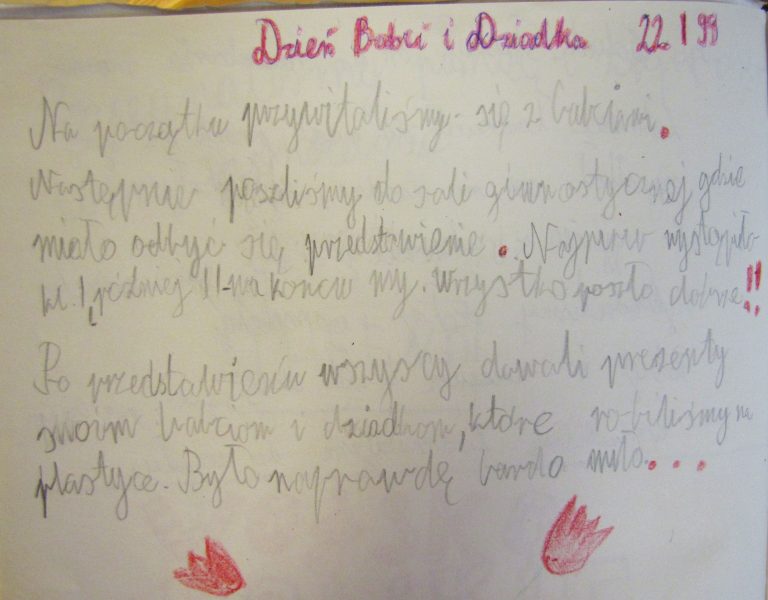 Dzień Babci i Dziadka 22 I 99
Na początku przywitaliśmy się z babciami.
Następnie poszliśmy do sali gimnastycznej gdzie
miało odbyć się przedstawienie. Najpierw wystąpiła
kl. I, później II - na końcu my. Wszystko poszło dobrze!!
Po przedstawieniu wszyscy dawali prezenty
swoim babciom i dziadkom, które robiliśmy na
plastyce. Było naprawdę bardo miło...